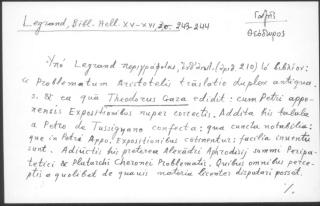 Legrand, Bibl. Hell. XV-XVI, σσ. 243-244
Γαζῆς
Θεόδωρος
Ὑπὸ Legrand περιγράφεται, (ἀριθ. 210) τὸ βιβλίον:
Problematum Aristotelis trāslatio duplex antiqua
s. & ea quā Theodorus Gaza edidit: cum Petri appo-
nensis Expositionibus nuper correctis. Addita his tabula
a Petro de Tussignano confecta: qua cuncta notabilia:
que in Petri Appo. Expositionibus cōtinentur: facilia inuentu
sunt. Adiūctis his preterea Alexādri Aphrodisij sommi Peripa-
tetici & Plutarchi Cheronei Problematis. Quibus omnibus perce-
ptis a quolibet de quauis materia licenter disputari possit.
%.